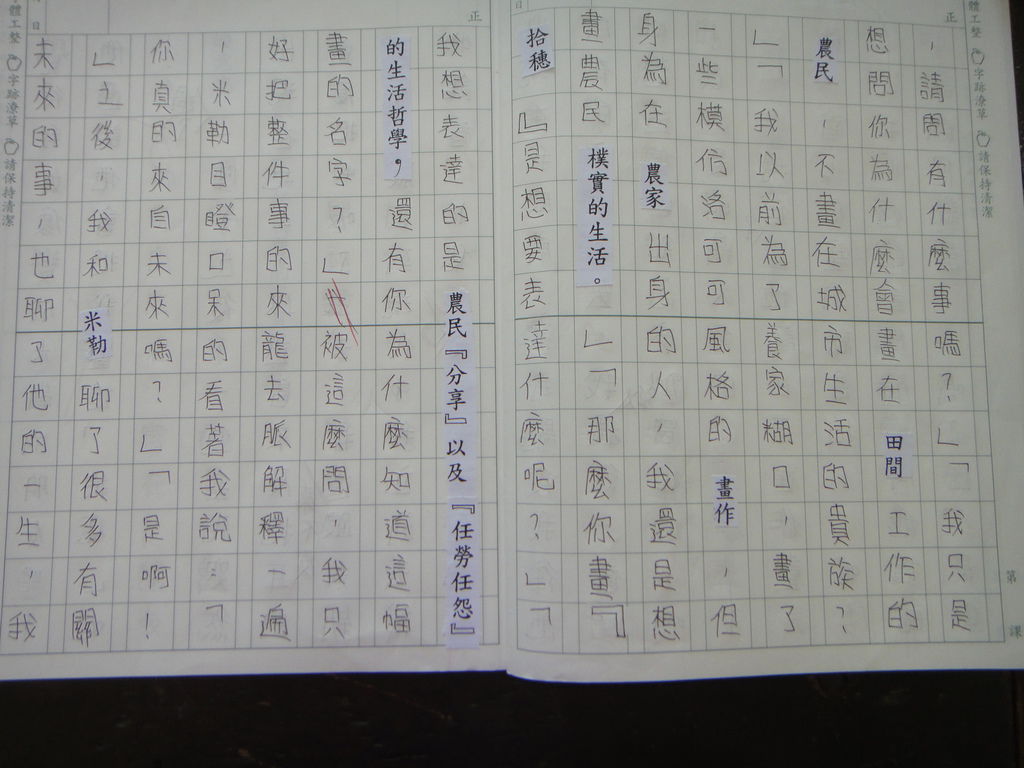 體工整 字跡潦草 請保持清潔
第 課
正
，請問有什麼事嗎？」「我只是
想問你為什麼會畫在田間工作的
農民，不畫在城市生活的貴族？
」「我以前為了養家糊口，畫了
一些模仿洛可可風格的畫作，但
身為在農家出身的人，我還是想
畫農民樸實的生活。」「那麼你畫『
拾穗』是想要表達什麼呢？」「
日
正
我想表達的是農民『分享』以及『任勞任怨』
的生活哲學，還有你為什麼知道這幅
畫的名字？」被這麼問，我只
好把整件事的來龍去脈解釋一遍
，米勒目瞪口呆的看著我說：「
你真的來自未來嗎？」「是啊！
」之後我和米勒聊了很多有關
未來的事，也聊了他的一生，我
日
體工整 字跡潦草 請保持清潔